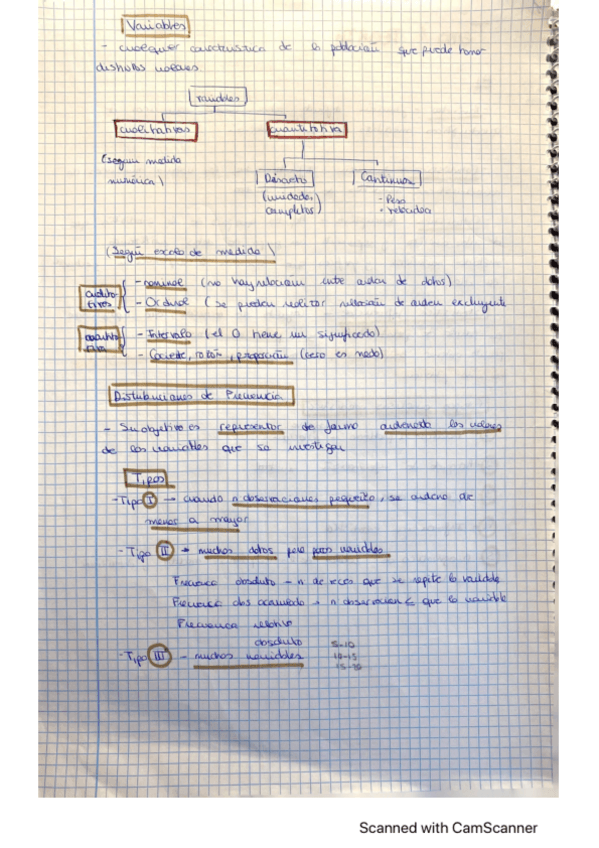 Variables
- cualquier característica de la población que puede tomar
distintos valores
variables
cualitativas
cuantitativa
(según medida
numérica)
Discreta
(unidades,
completas)
Continuas
- Peso
(Según escala de medida)
cualita-
tivas
- nominal (no hay relación entre orden de datos)
- Ordinal (se pueden realizar relación de orden excluyente
cuantita-
tivas
- Intervalo (el 0 tiene un significado)
- Cociente, razón, proporción (cero es nada)
Distribuciones de Frecuencia
- Su objetivo es representar de forma ordenada los valores
de las variables que se investigan
Tipos
- Tipo I → cuando n observaciones pequeño, se ordena de
menor a mayor
- Tipo II → muchos datos pero pocas variables
Frecuencia absoluta - n de veces que se repite la variable
Frecuencia abs acumulada → n observacion ≤ que la variable
Frecuencia relativa
absoluta
- Tipo III - muchas variables
5-10
10-15
15-20
Scanned with CamScanner